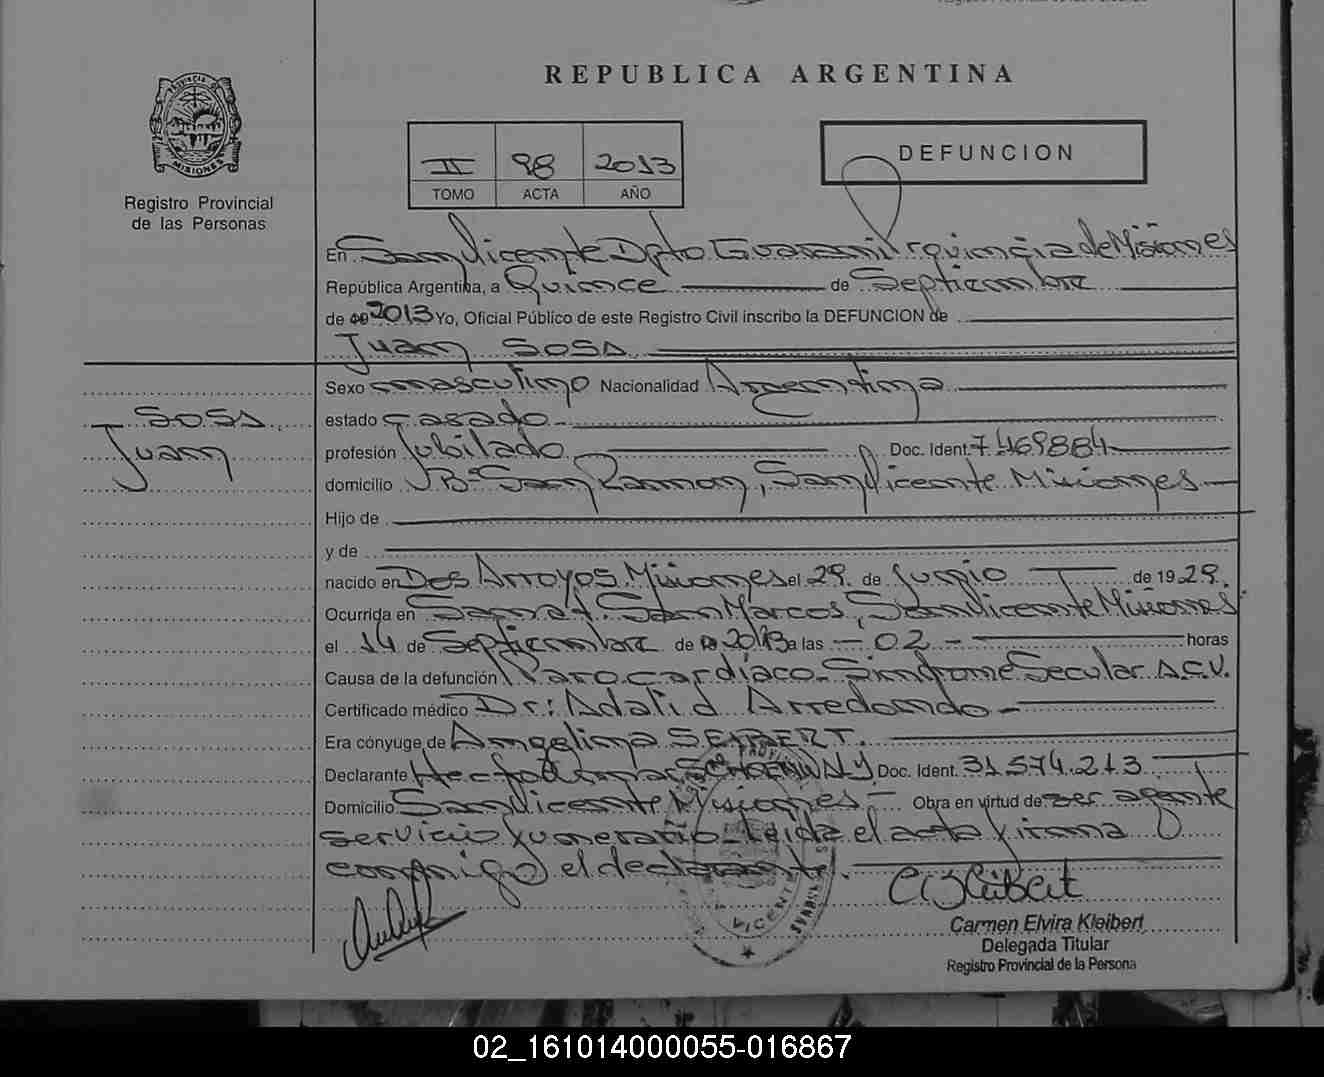 REPUBLICA ARGENTINA
PROVINCIA DE MISIONES
Registro Provincial
de las Personas
II 98 2013
TOMO ACTA AÑO
DEFUNCION
En San Vicente Dpto Guarani Provincia de Misiones
República Argentina, a Quince de Septiembre
de 2013 Yo, Oficial Público de este Registro Civil inscribo la DEFUNCION de
Juan SOSA
SOSA
Juan
Sexo masculino Nacionalidad Argentina
estado casado
profesión Jubilado Doc. Ident. 7.469884
domicilio Bº San Ramon, San Vicente Misiones
Hijo de
y de
nacido en Dos Arroyos Misiones el 29 de Junio de 1929.
Ocurrida en San Marcos, San Vicente Misiones
el 14 de Septiembre de 2013 a las 02 horas
Causa de la defunción Paro cardíaco Secular A.C.V.
Certificado médico Dr: Adalid Arredondo
Era cónyuge de Angelina SEIBERT.
Declarante Doc. Ident. 31.574.213
Domicilio San Vicente Misiones Obra en virtud de ser agente
servicio funerario - Leida el acta firma
conmigo el declarante.
VICENTE
Carmen Elvira Kleibert
Delegada Titular
Registro Provincial de la Persona
02_161014000055-016867